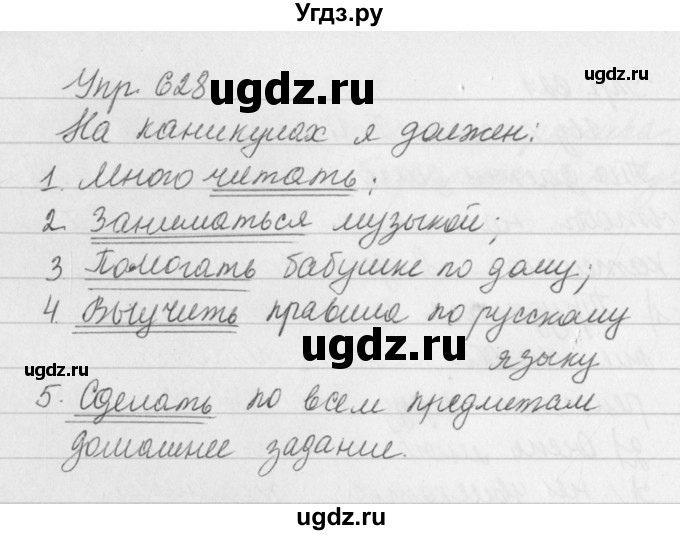 Угдз.ру
ugdz.ru ugdz.ru
Упр. 628
ugdz.ru
На каникулах я должен:
1. Много читать;
2. Заниматься музыкой;
3 Помогать бабушке по дому;
4. Выучить правила по русскому
ugdz.ru
языку
ugdz.ru
5. Сделать по всем предметам
домашнее задание.
ugdz.ru
ugdz.ru